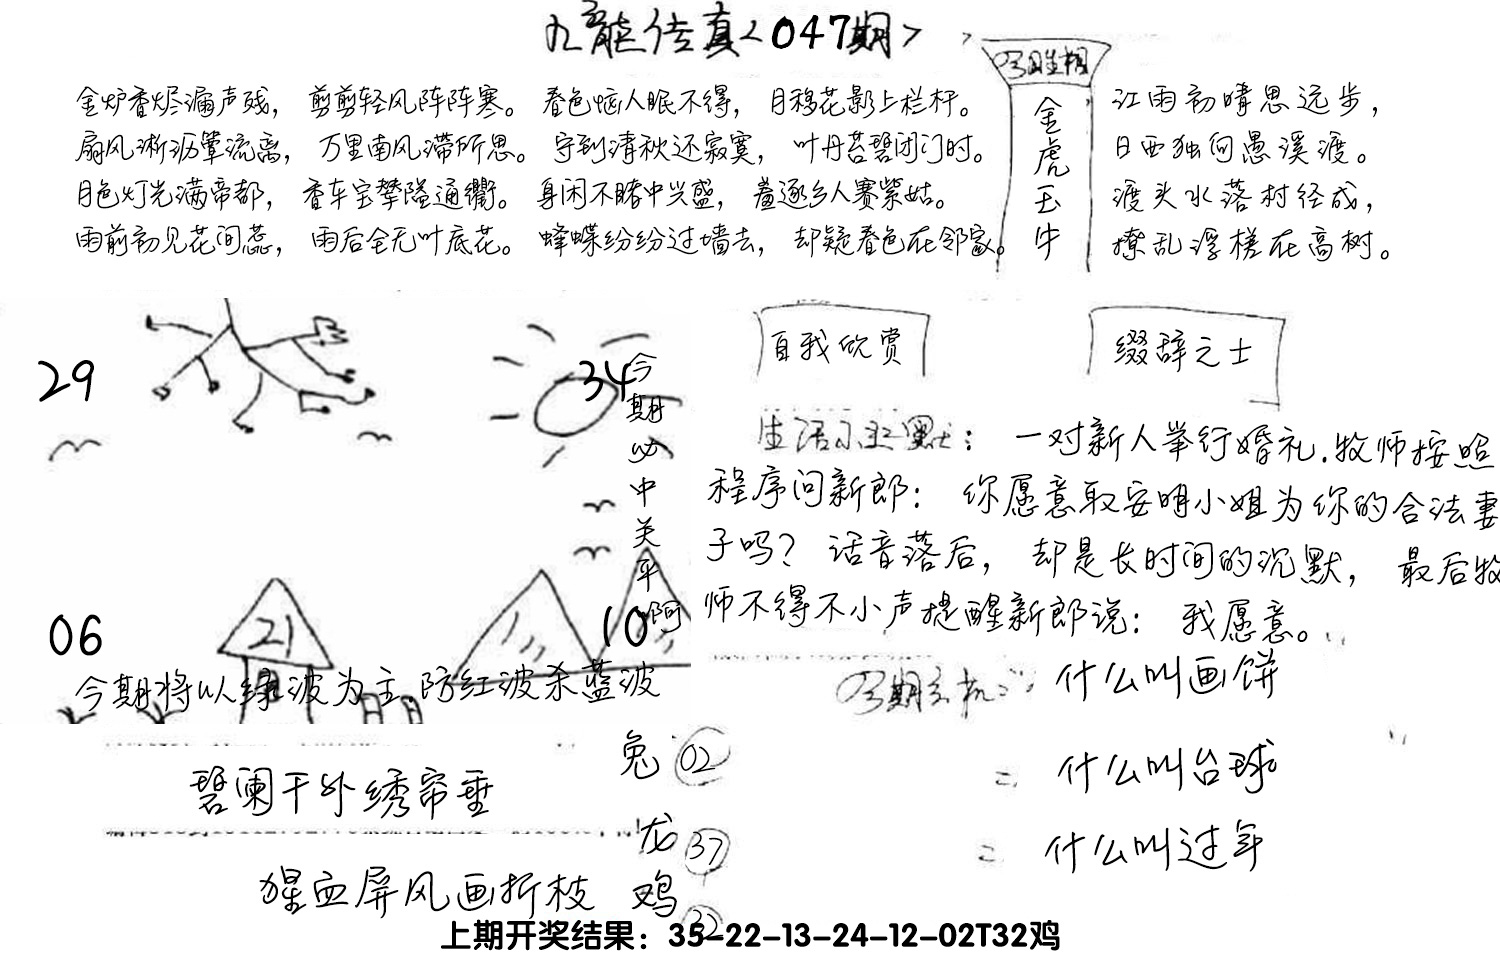 九龙传真<047期>
金炉香烬漏声残，剪剪轻风阵阵寒。春色恼人眠不得，月移花影上栏杆。
扇风淅沥簟流离，万里南风滞所思。守到清秋还寂寞，叶丹苔碧闭门时。
月色灯光满帝都，香车宝辇隘通衢。身闲不睹中兴盛，羞逐乡人赛紫姑。
雨前初见花间蕊，雨后全无叶底花。蜂蝶纷纷过墙去，却疑春色在邻家。
金虎玉牛
江雨初晴思远步，
日西独向愚溪渡。
渡头水落村径成，
撩乱浮槎在高树。
29
34
今期必中关平啊
06
21
10
今期将以绿波为主防红波杀蓝波
自我欣赏
缀辞之士
生活小幽默：一对新人举行婚礼.牧师按照
程序问新郎：你愿意取安明小姐为你的合法妻
子吗？话音落后，却是长时间的沉默，最后牧
师不得不小声提醒新郎说：我愿意。
什么叫画饼
=什么叫台球
=什么叫过年
碧阑干外绣帘垂
猩血屏风画折枝
兔02
龙37
鸡32
上期开奖结果：35-22-13-24-12-02T32鸡